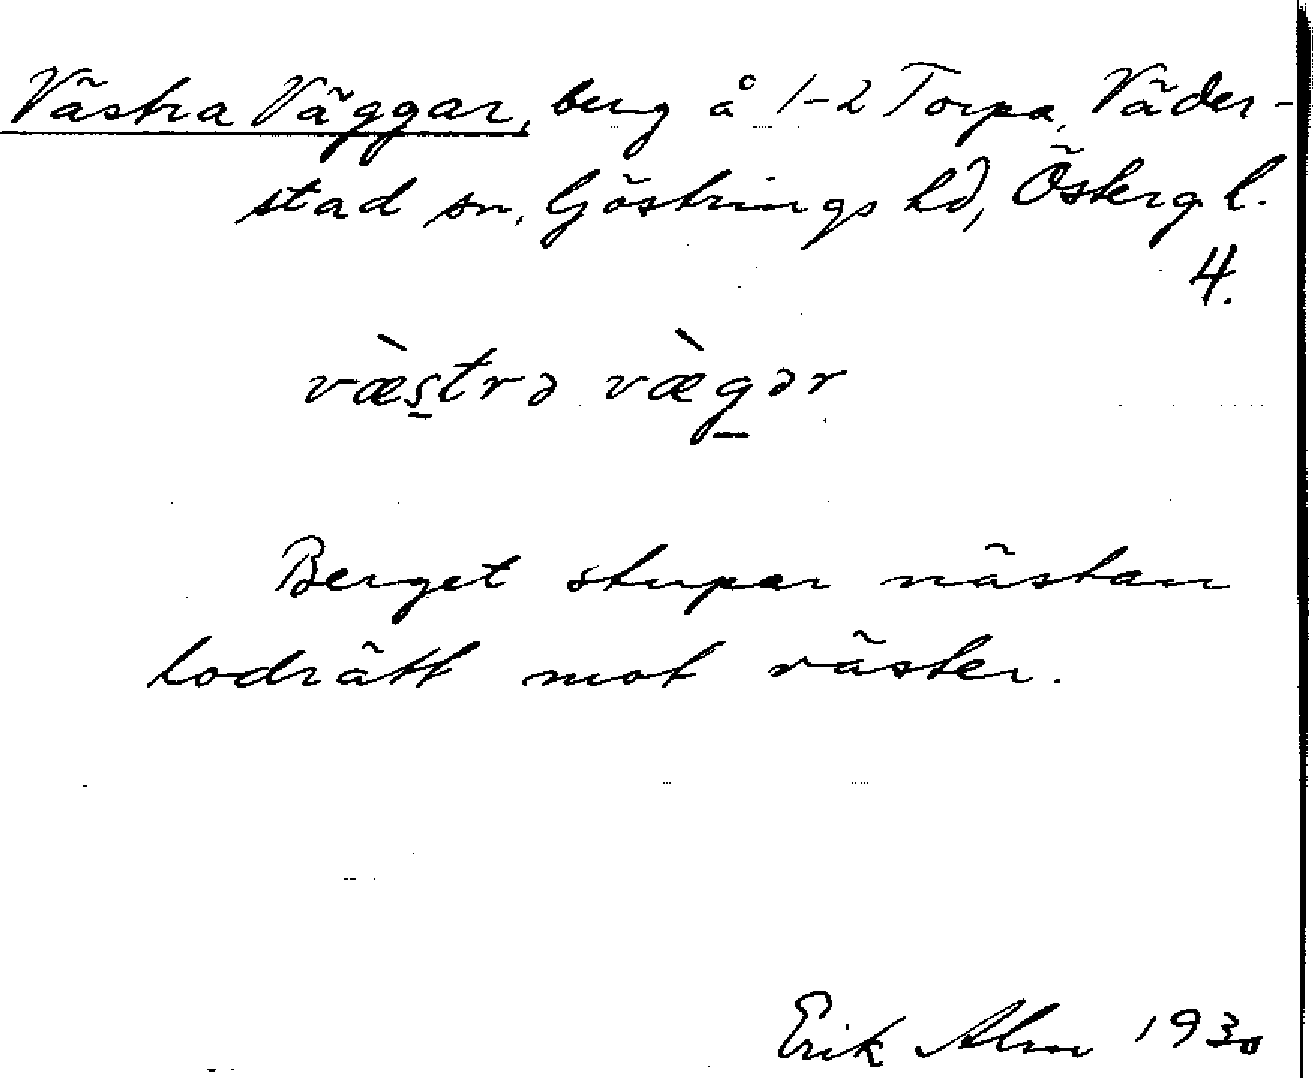 Västra Väggar, berg å 1-2 Torpa, Väder-
stad sn, Göstrings hd, Österg. l.
4.
væ̀s̲trə væ̀g̲ər
Berget stupar nästan
lodrätt mot väster.
Erik Alm 1930